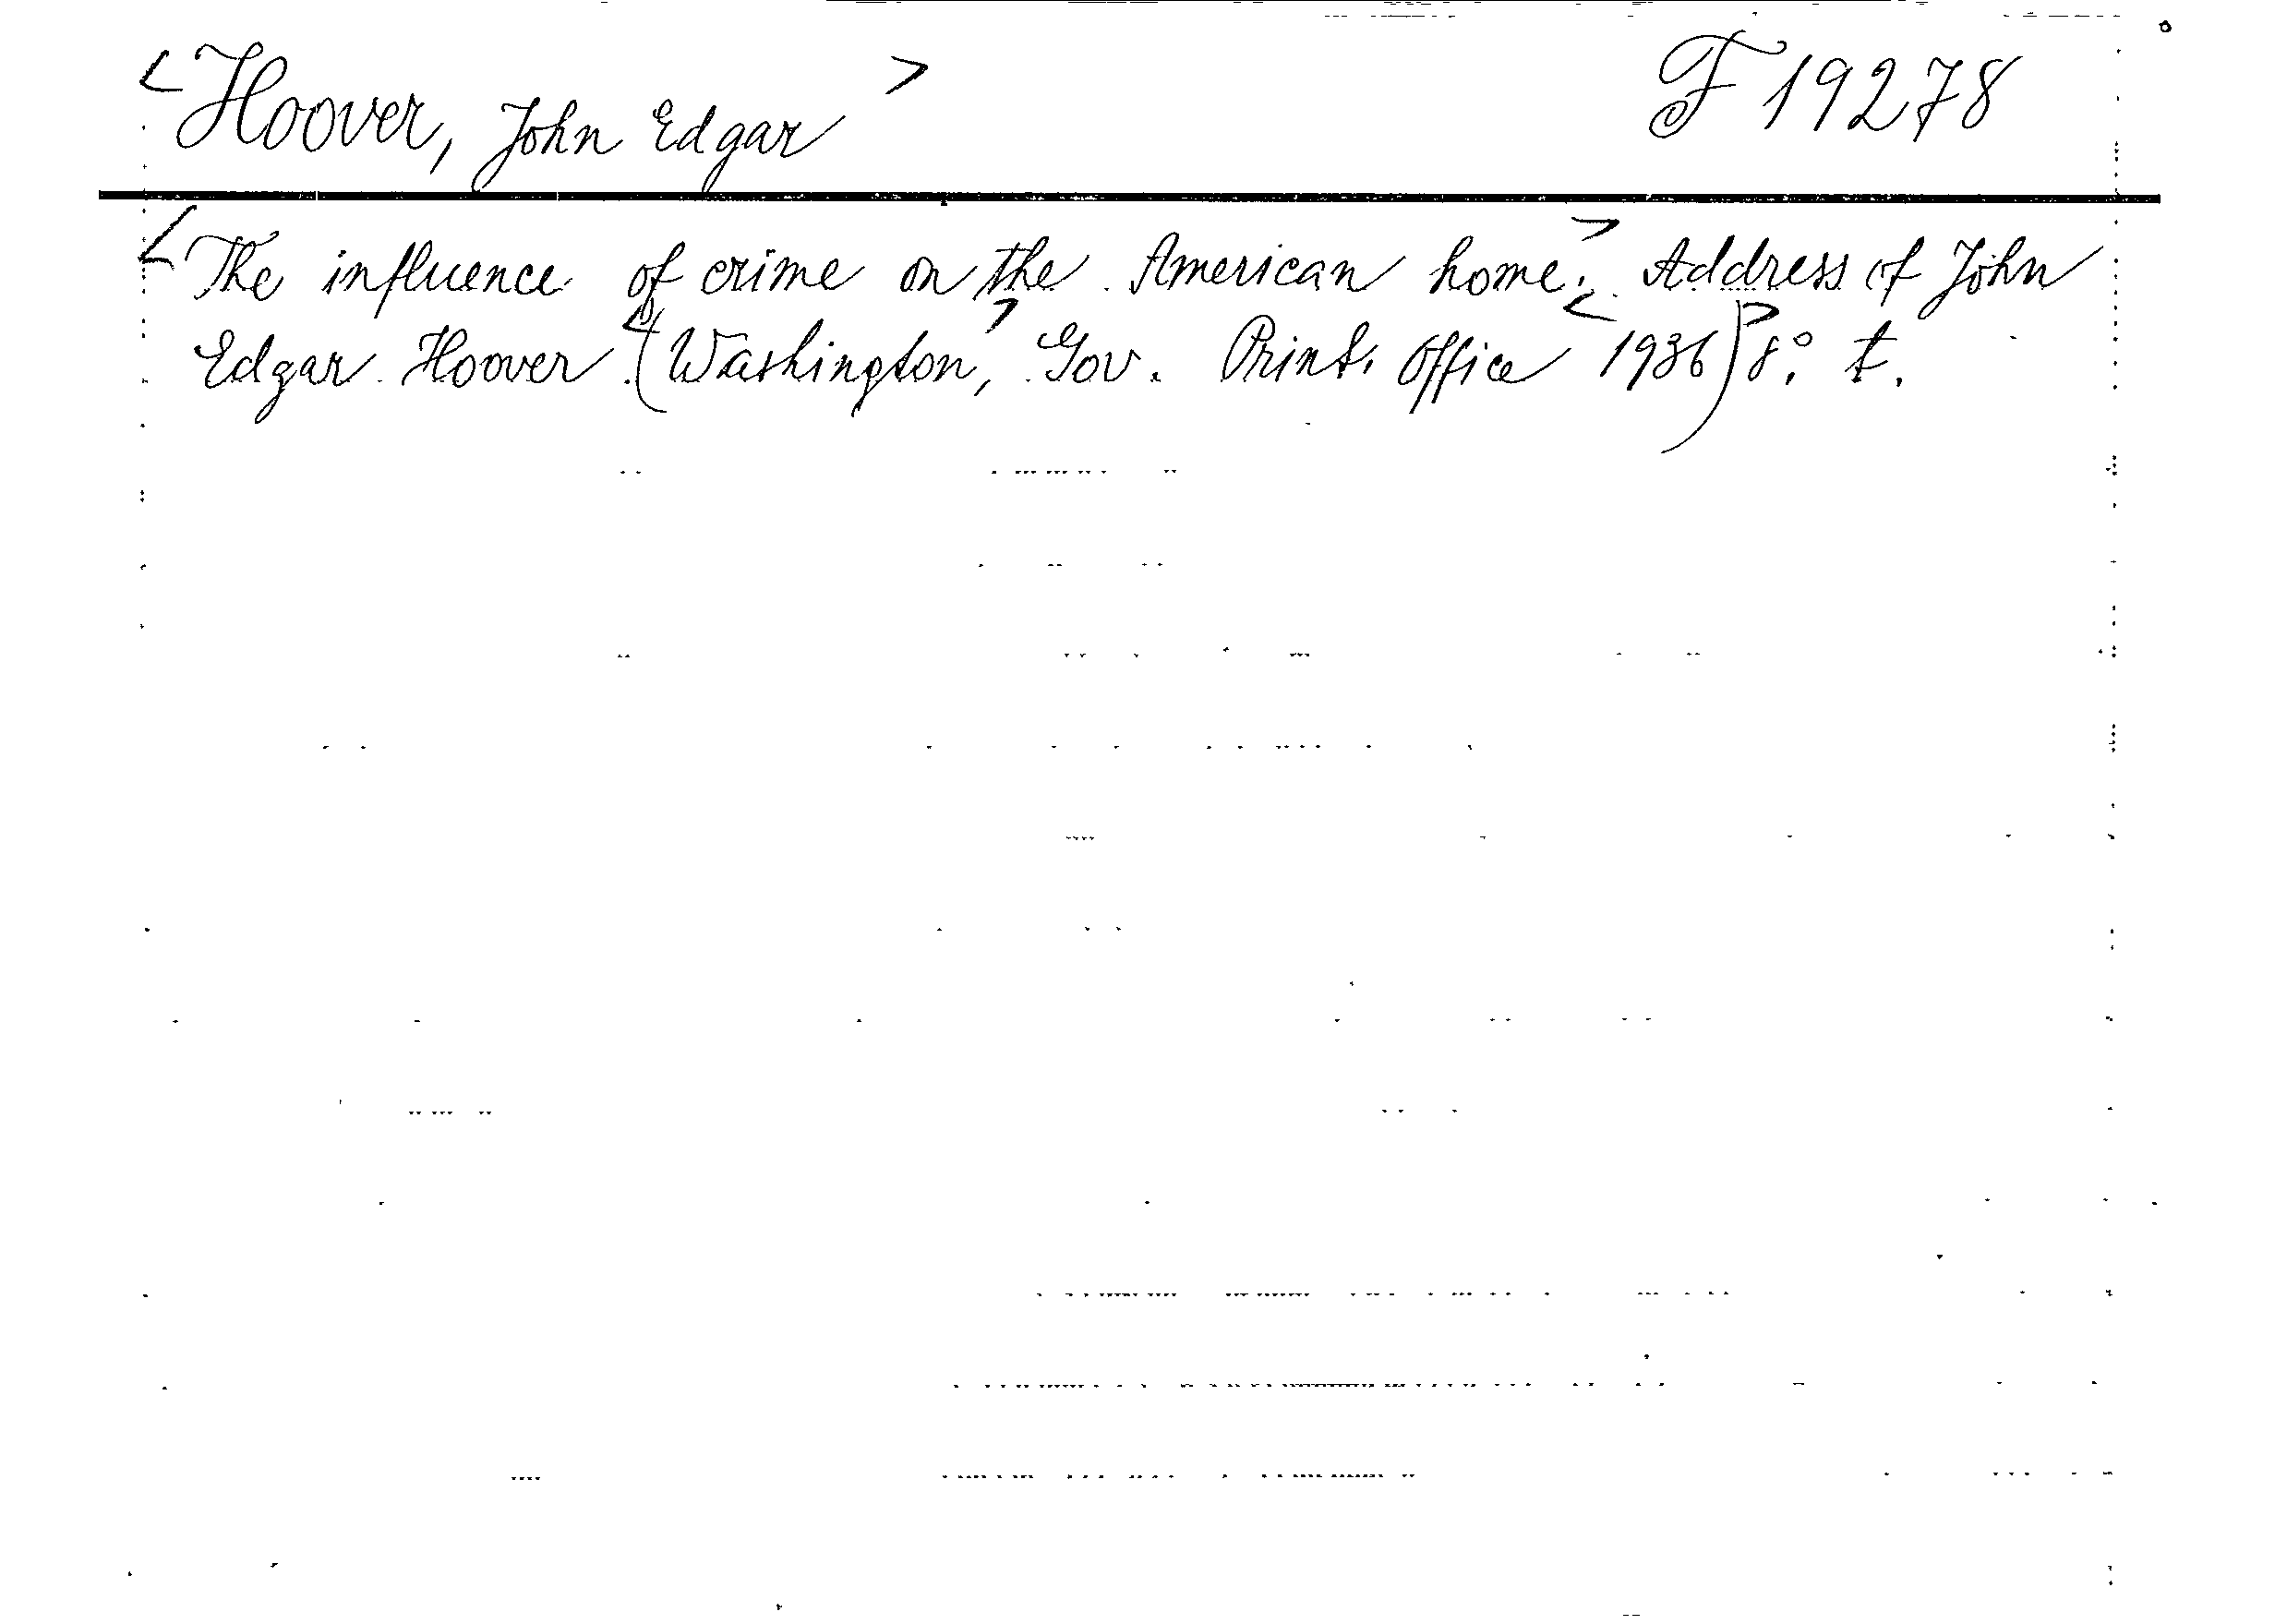 <Hoover, John Edgar> F 19278
<The influence of crime on the American home.> Address of John
Edgar Hoover. <(Washington,> Gov. Print. Office <1936)> 8° t.